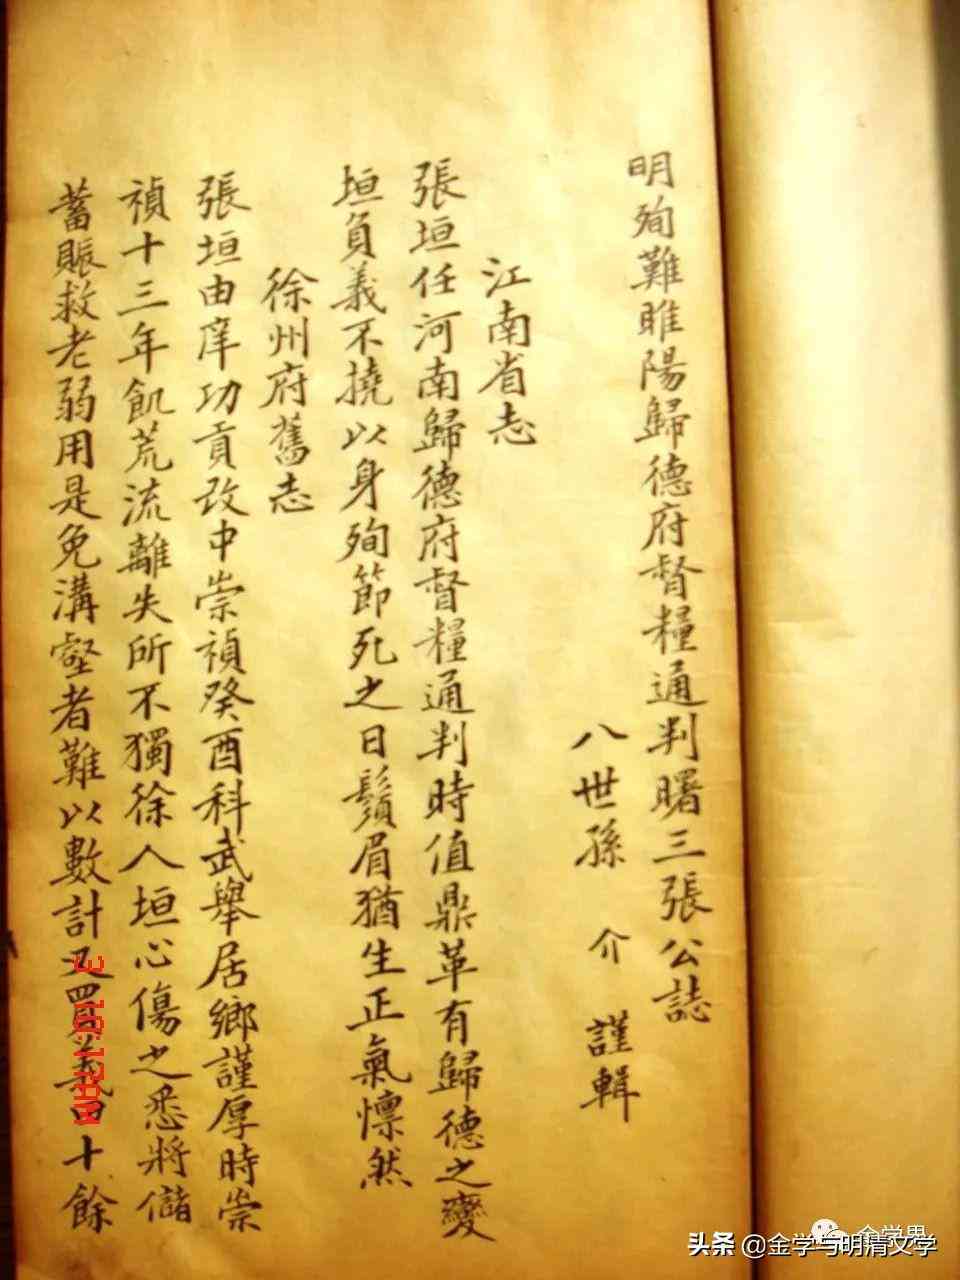 明殉難睢陽歸德府督糧通判曙三張公誌
八世孫 介 謹輯
江南省志
張垣任河南歸德府督糧通判時值鼎革有歸德之變
垣負義不撓以身殉節死之日鬚眉猶生正氣懍然
徐州府舊志
張垣由庠功貢改中崇禎癸酉科武舉居鄉謹厚時崇
禎十三年飢荒流離失所不獨徐人垣心傷之悉將儲
蓄賑救老弱用是免溝壑者難以數計又買義田十餘
头条 @金学与明清文学
金学界